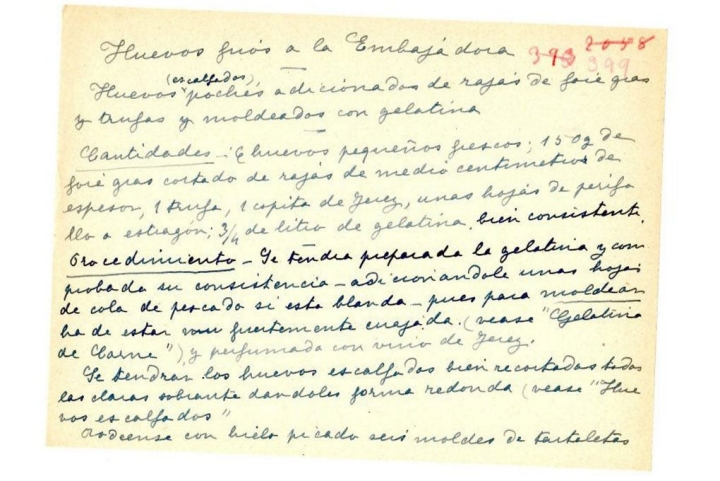 Huevos frios a la Embajadora 393 2048
399
(escalfados)
Huevos pochés adicionados de rajas de foié gras
y trufas y moldeados con gelatina
Cantidades - 6 huevos pequeños frescos; 150g de
foié gras cortado de rajas de medio centimetro de
espesor, 1 trufa, 1 copita de Jerez, unas hojas de perifo
llo o estragón; 3/4 de litro de gelatina, bien consistente.
Procedimiento - Se tendra preparada la gelatina y com
probada su consistencia - adicionandole unas hojas
de cola de pescado si esta blanda - pues para moldear
ha de estar muy fuertemente cuajada. (vease "Gelatina
de Carne") y perfumada con vino de Jerez.
Se tendran los huevos escalfados bien recortadas todas
las claras sobrante dandoles forma redonda (vease "Hue
vos escalfados"
Rodeense con hielo picado seis moldes de tartaletas